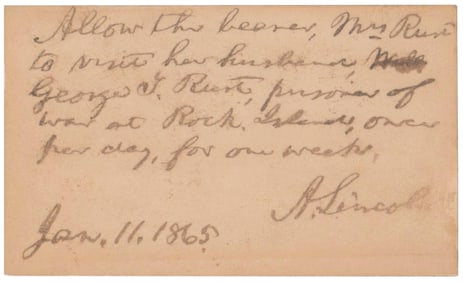 Allow the bearer, Mrs Rust
to visit her husband,
George T. Rust, prisoner of
war at Rock. Island, once
per day, for one week.
A. Lincoln
Jan. 11. 1865.